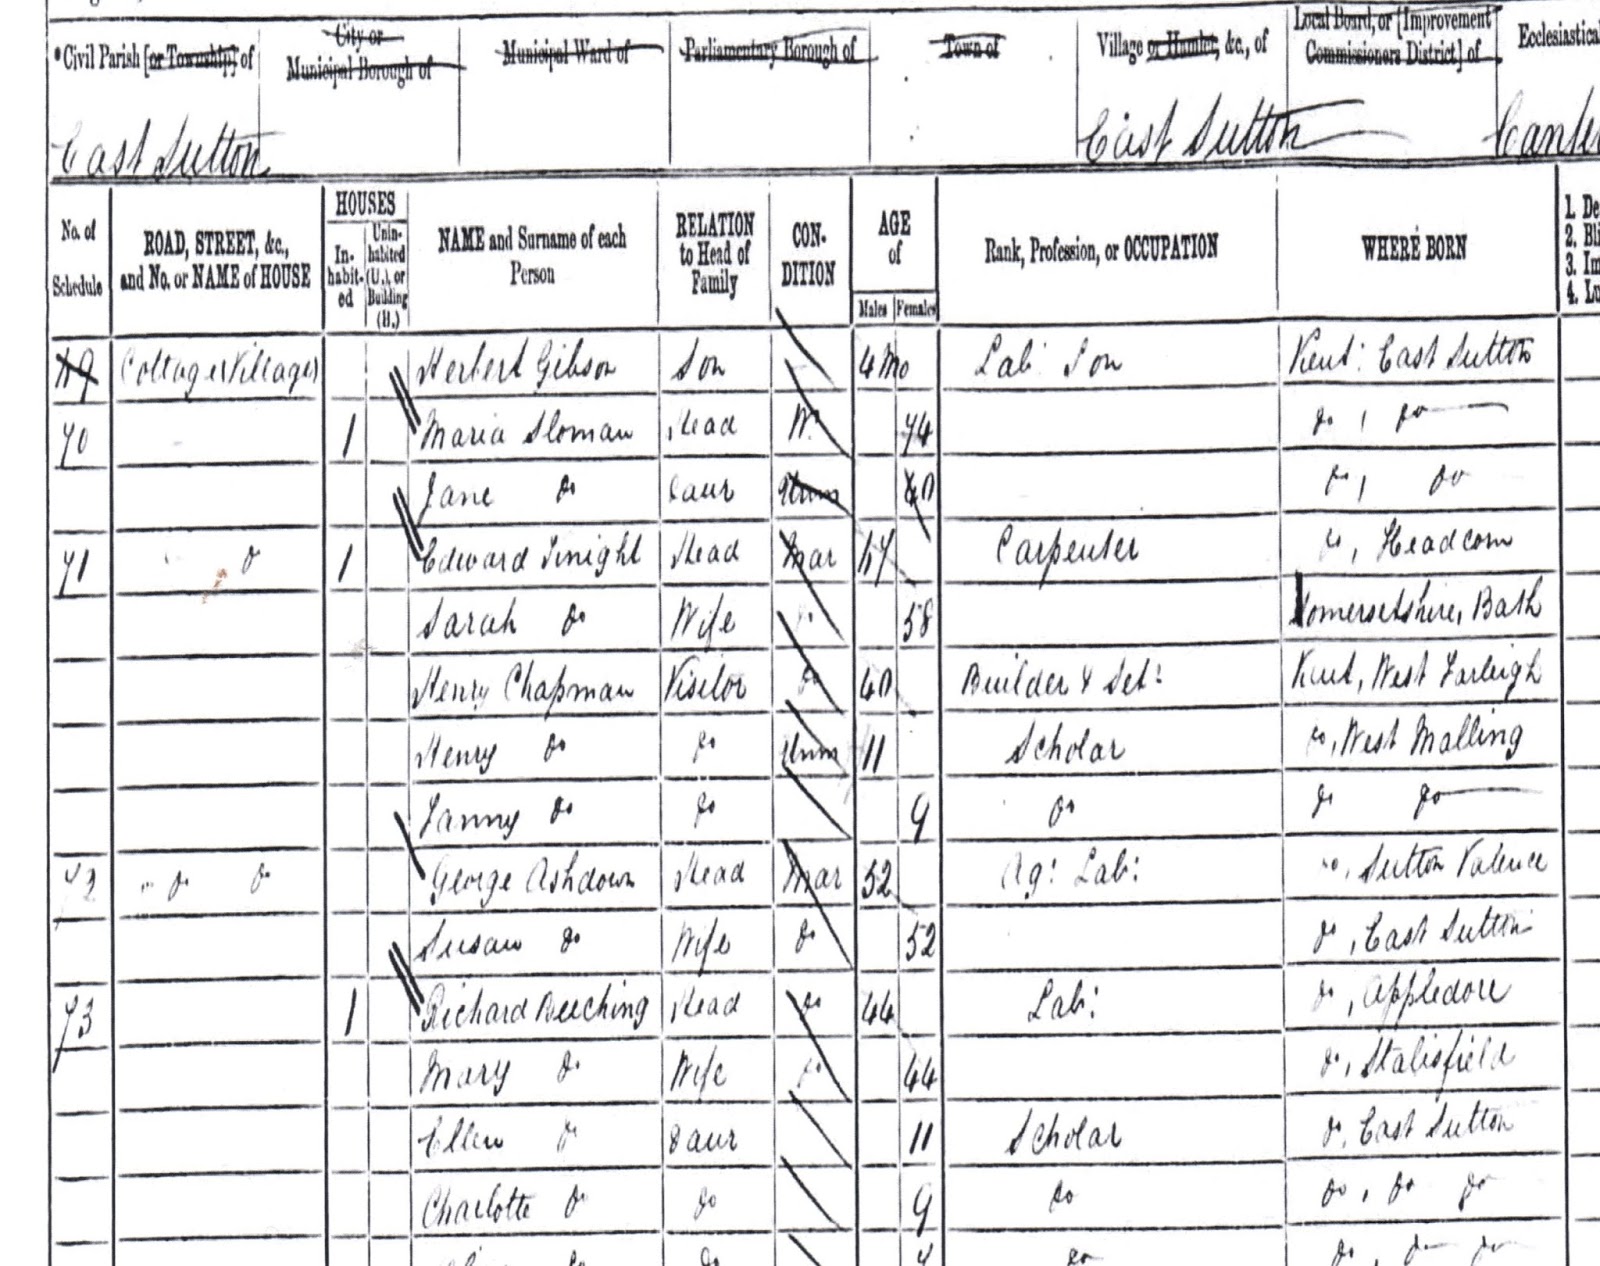 *Civil Parish [or Township] of
City or
Municipal Borough of
Municipal Ward of
Parliamentary Borough of
Town of
Village or Hamlet, &c., of
Local Board, or [Improvement
Commissioners District] of
Ecclesiastical
East Sutton
East Sutton
No. of
Schedule
ROAD, STREET, &c.,
and No. or NAME of HOUSE
HOUSES
In-
habit-
ed
Unin-
habited
(U.), or
Building
(B.)
NAME and Surname of each
Person
RELATION
to Head of
Family
CON-
DITION
AGE
of
Males
Females
Rank, Profession, or OCCUPATION
WHERE BORN
1. De
2. Bli
3. Im
4. Lu
Herbert Gibson Son 4 Mo Lab: Son Kent: East Sutton
70 1 Maria Sloman Head W. 74 do, do
Jane do Daur Unm do, do
71 do 1 Edward Head Mar Carpenter do, Headcorn
Sarah do Wife 58 Somersetshire, Bath
Henry Chapman Visitor do 40 Builder & Kent, West Farleigh
Henry do do Unm 11 Scholar do, West Malling
Fanny do do 9 do do do
72 do do George Ashdown Head Mar 52 Ag: Lab: do, Sutton Valence
Susan do Wife do 52 do, East Sutton
73 1 Richard Beeching Head do 44 Lab: do, Appledore
Mary do Wife do 44 do, Stalisfield
Ellen do Daur 11 Scholar do, East Sutton
Charlotte do do 9 do do, do do
do do do do, do do